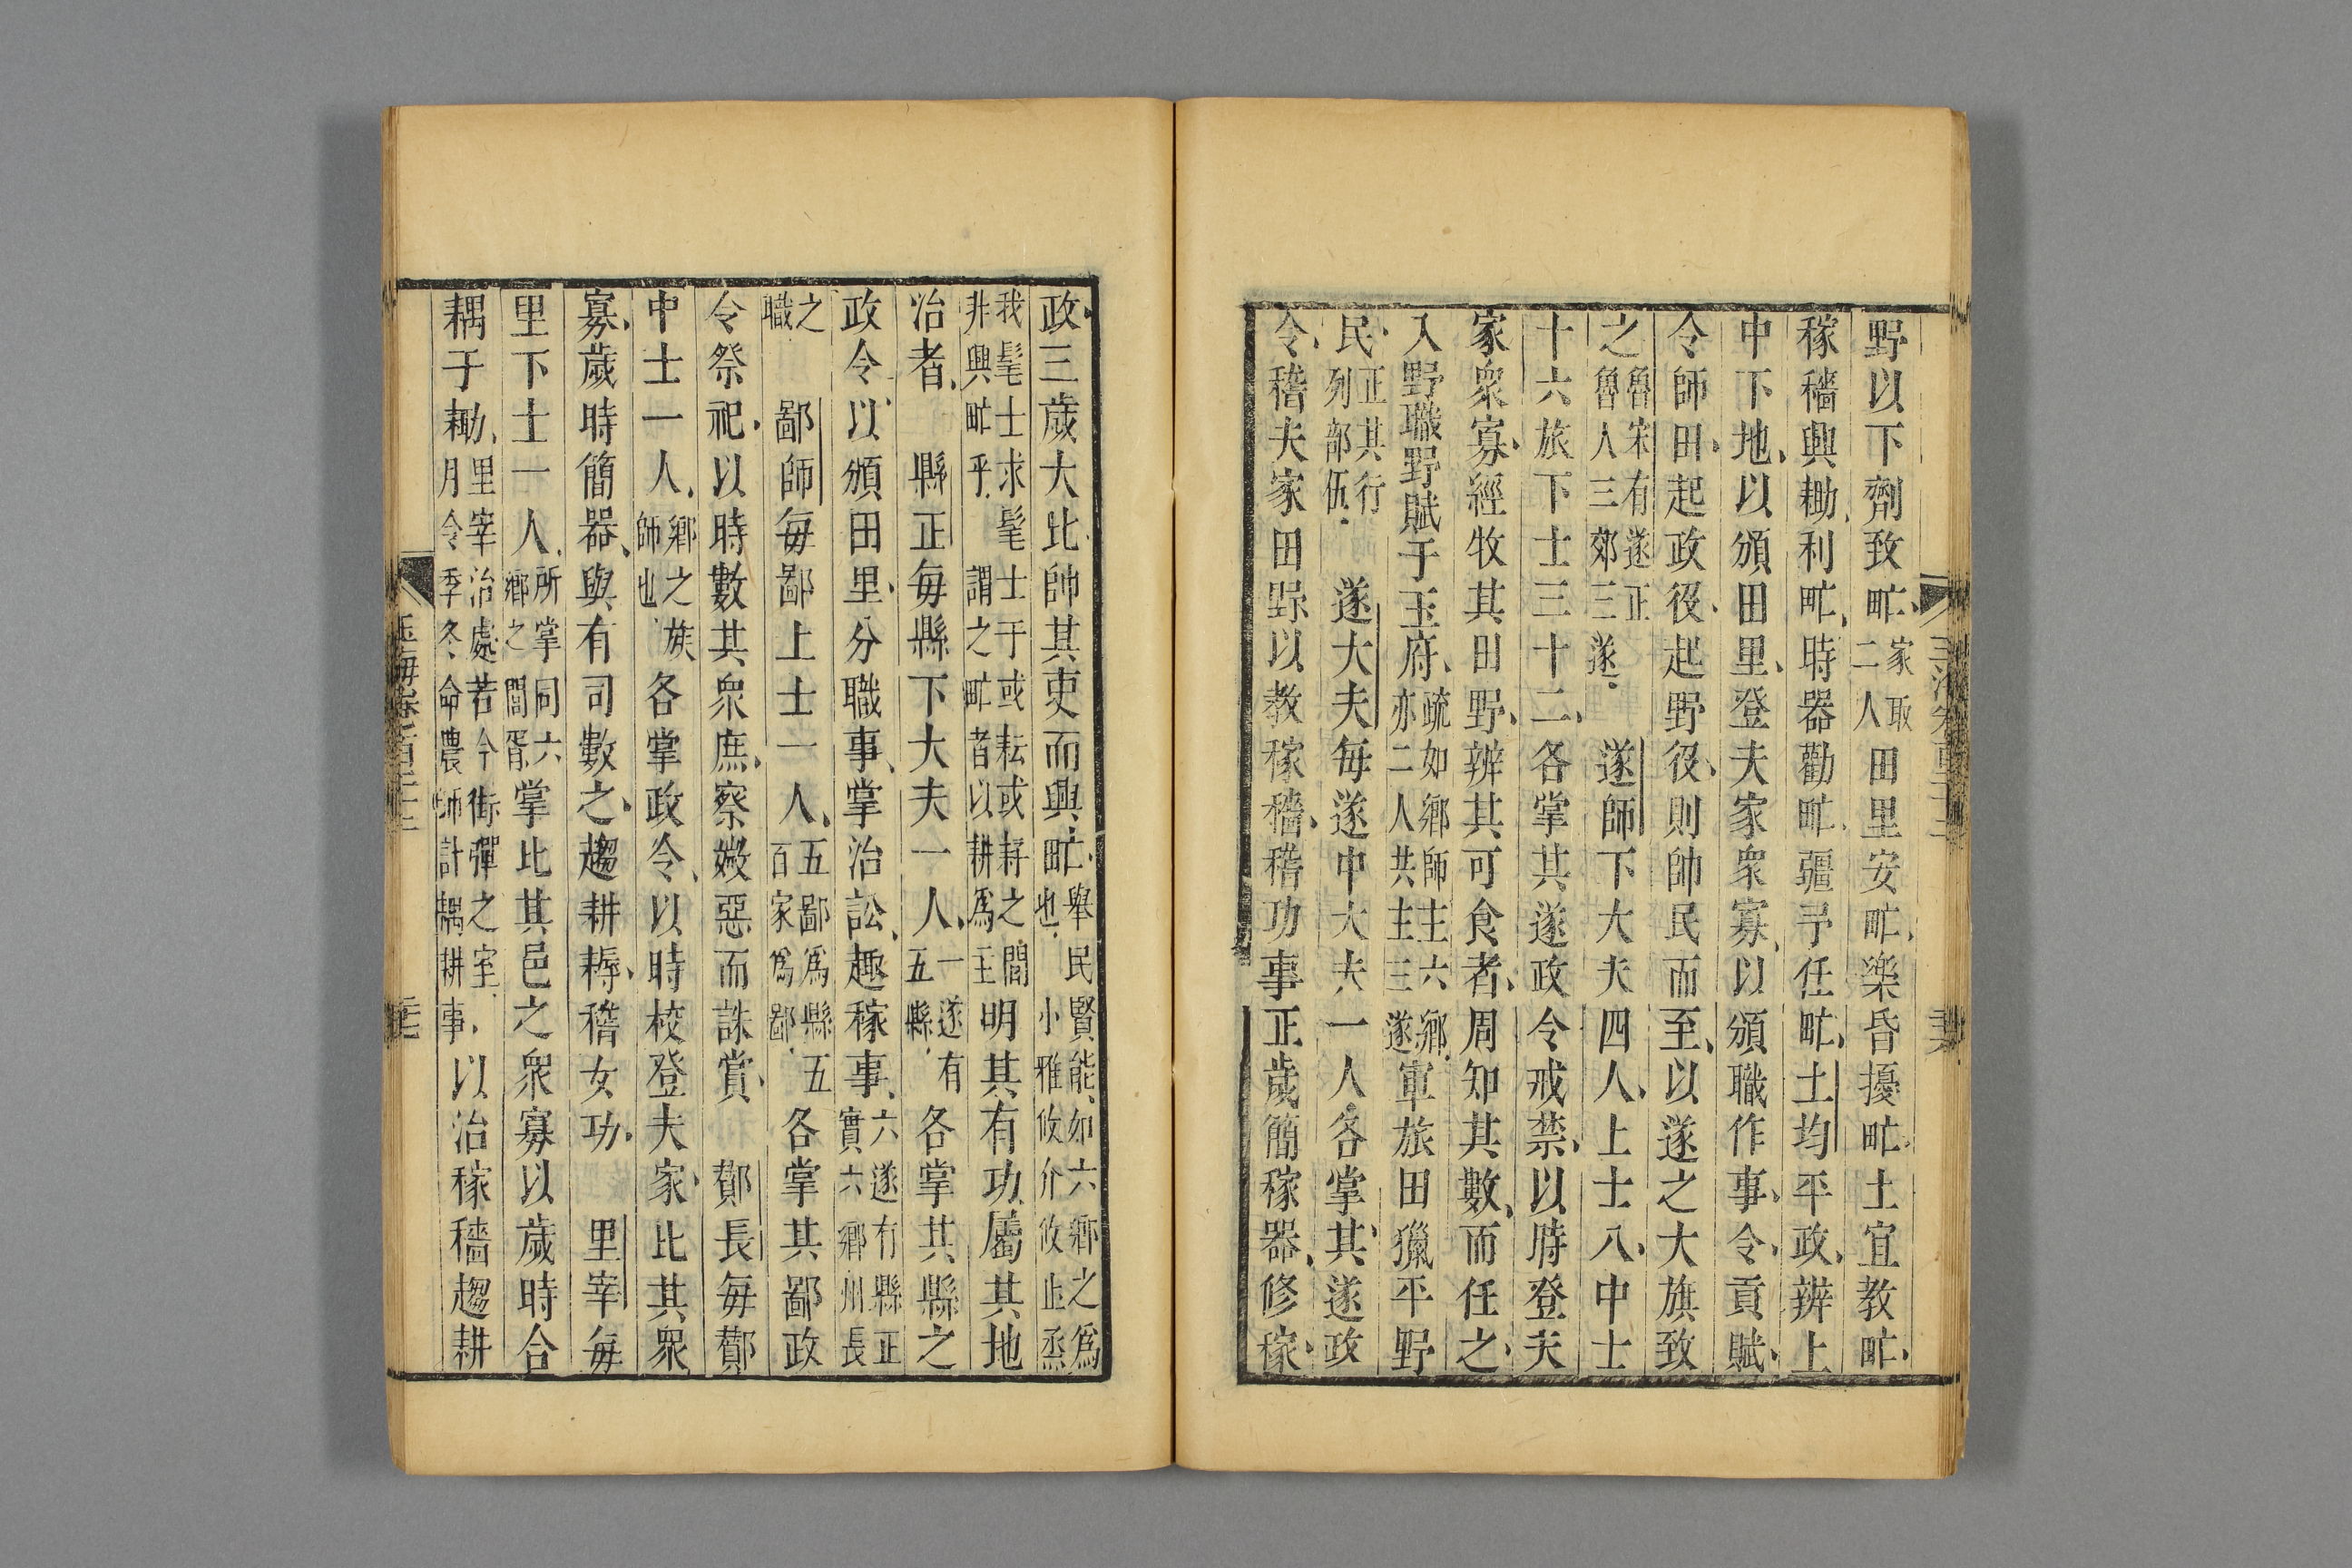 野以下劑致甿家取二人田里安甿樂昏擾甿土宜教甿
稼穡興耡利甿時器勸甿彊予任甿土均平政辨上
中下地以頒田里登夫家衆寡以頒職作事令貢賦
令師田起政役起野役則帥民而至以遂之大旗致
之魯宋有遂正魯人三郊三遂遂師下大夫四人上士八中士
十六旅下士三十二各掌其遂政令戒禁以時登夫
家衆寡經牧其田野辨其可食者周知其數而任之
入野職野賦于玉府疏如鄉師主六鄉亦二人共主三遂軍旅田獵平野
民正其行列部伍遂大夫每遂中大夫一人各掌其遂政
令稽夫家田野以教稼穡稽功事正歲簡稼器修稼
政三歲大比帥其吏而興甿舉民賢能如六鄉之爲也小雅攸介攸止烝
我髦士求髦士于或耘或耔之間非興甿乎謂之甿者以耕爲主明其有功屬其地
治者縣正每縣下大夫一人一遂有五縣各掌其縣之
政令以頒田里分職事掌治訟趣稼事六遂有縣正實六鄉州長
之職鄙師每鄙上士一人五鄙爲縣五百家爲鄙各掌其鄙政
令祭祀以時數其衆庶察媺惡而誅賞酇長每酇
中士一人鄉之族師也各掌政令以時校登夫家比其衆
寡歲時簡器與有司數之趨耕耨稽女功里宰每
里下士一人所掌同六鄉之閭胥掌比其邑之衆寡以歲時合
耦于耡里宰治處若今街彈之室月令季冬命農師計耦耕事以治稼穡趨耕